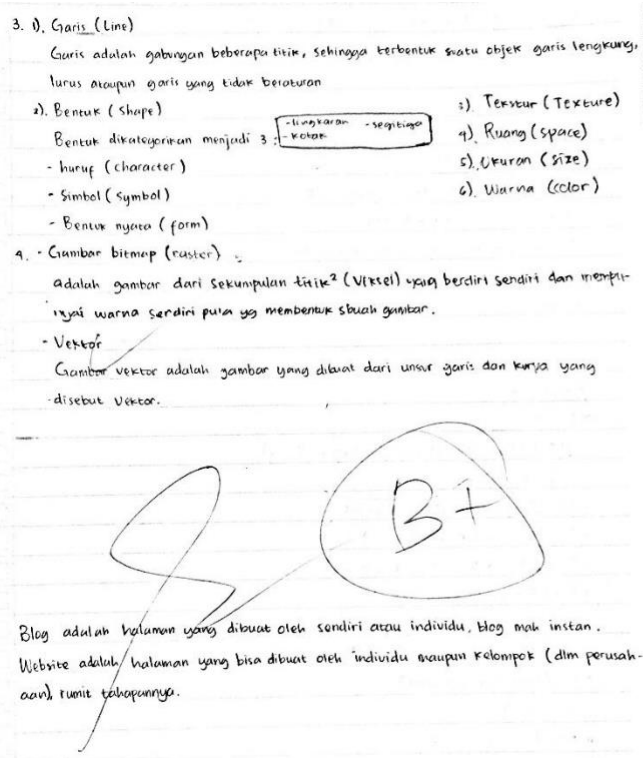 3. 1). Garis (Line)
Garis adalah gabungan beberapa titik, sehingga terbentuk suatu objek garis lengkung,
lurus ataupun garis yang tidak beraturan
2). Bentuk (Shape)
Bentuk dikategorikan menjadi 3 :
- lingkaran - segitiga
- kotak
- huruf (character)
- Simbol (symbol)
- Bentuk nyata (form)
3). Tekstur (Texture)
4). Ruang (space)
5). Ukuran (size)
6). Warna (color)
4. - Gambar bitmap (raster) :
adalah gambar dari sekumpulan titik² (Vixsel) yang berdiri sendiri dan mempu-
nyai warna serdiri pula yg membentuk sbuah gambar.
- Vektor
Gambar vektor adalah gambar yang dibuat dari unsur garis dan kurva yang
disebut Vektor.
B+
Blog adalah halaman yang dibuat oleh sendiri atau individu, blog mah instan.
Website adalah halaman yang bisa dibuat oleh individu maupun kelompok (dlm perusah-
aan), rumit tahapannya.